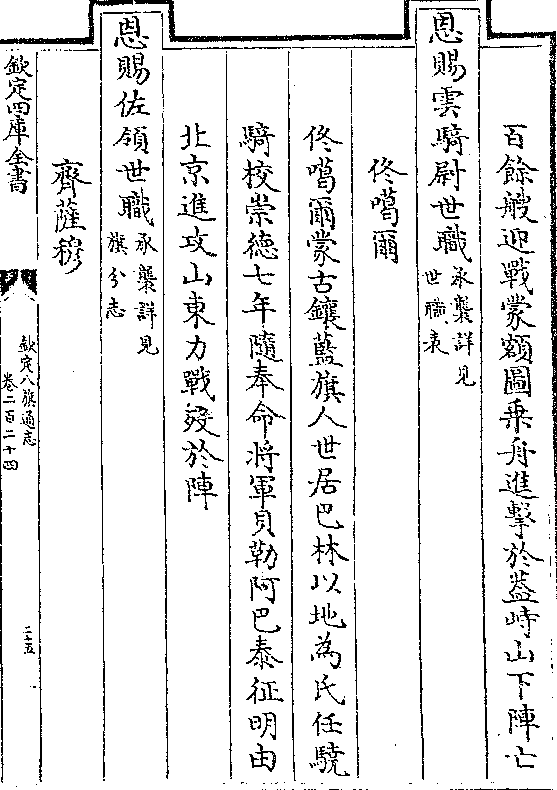 百餘艘迎戰蒙額圖乗舟進擊於葢峙山下陣亡
恩賜雲騎尉世職承襲詳見
世職表
佟噶爾
佟噶爾蒙古鑲藍旗人世居巴林以地為氏任驍
騎校崇德七年隨奉命將軍貝勒阿巴泰征明由
北京進攻山東力戰歿於陣
恩賜佐領世職承襲詳見
旗分志
齊薩穆
欽定四庫全書
欽定八旗通志
卷二百二十四
二十五